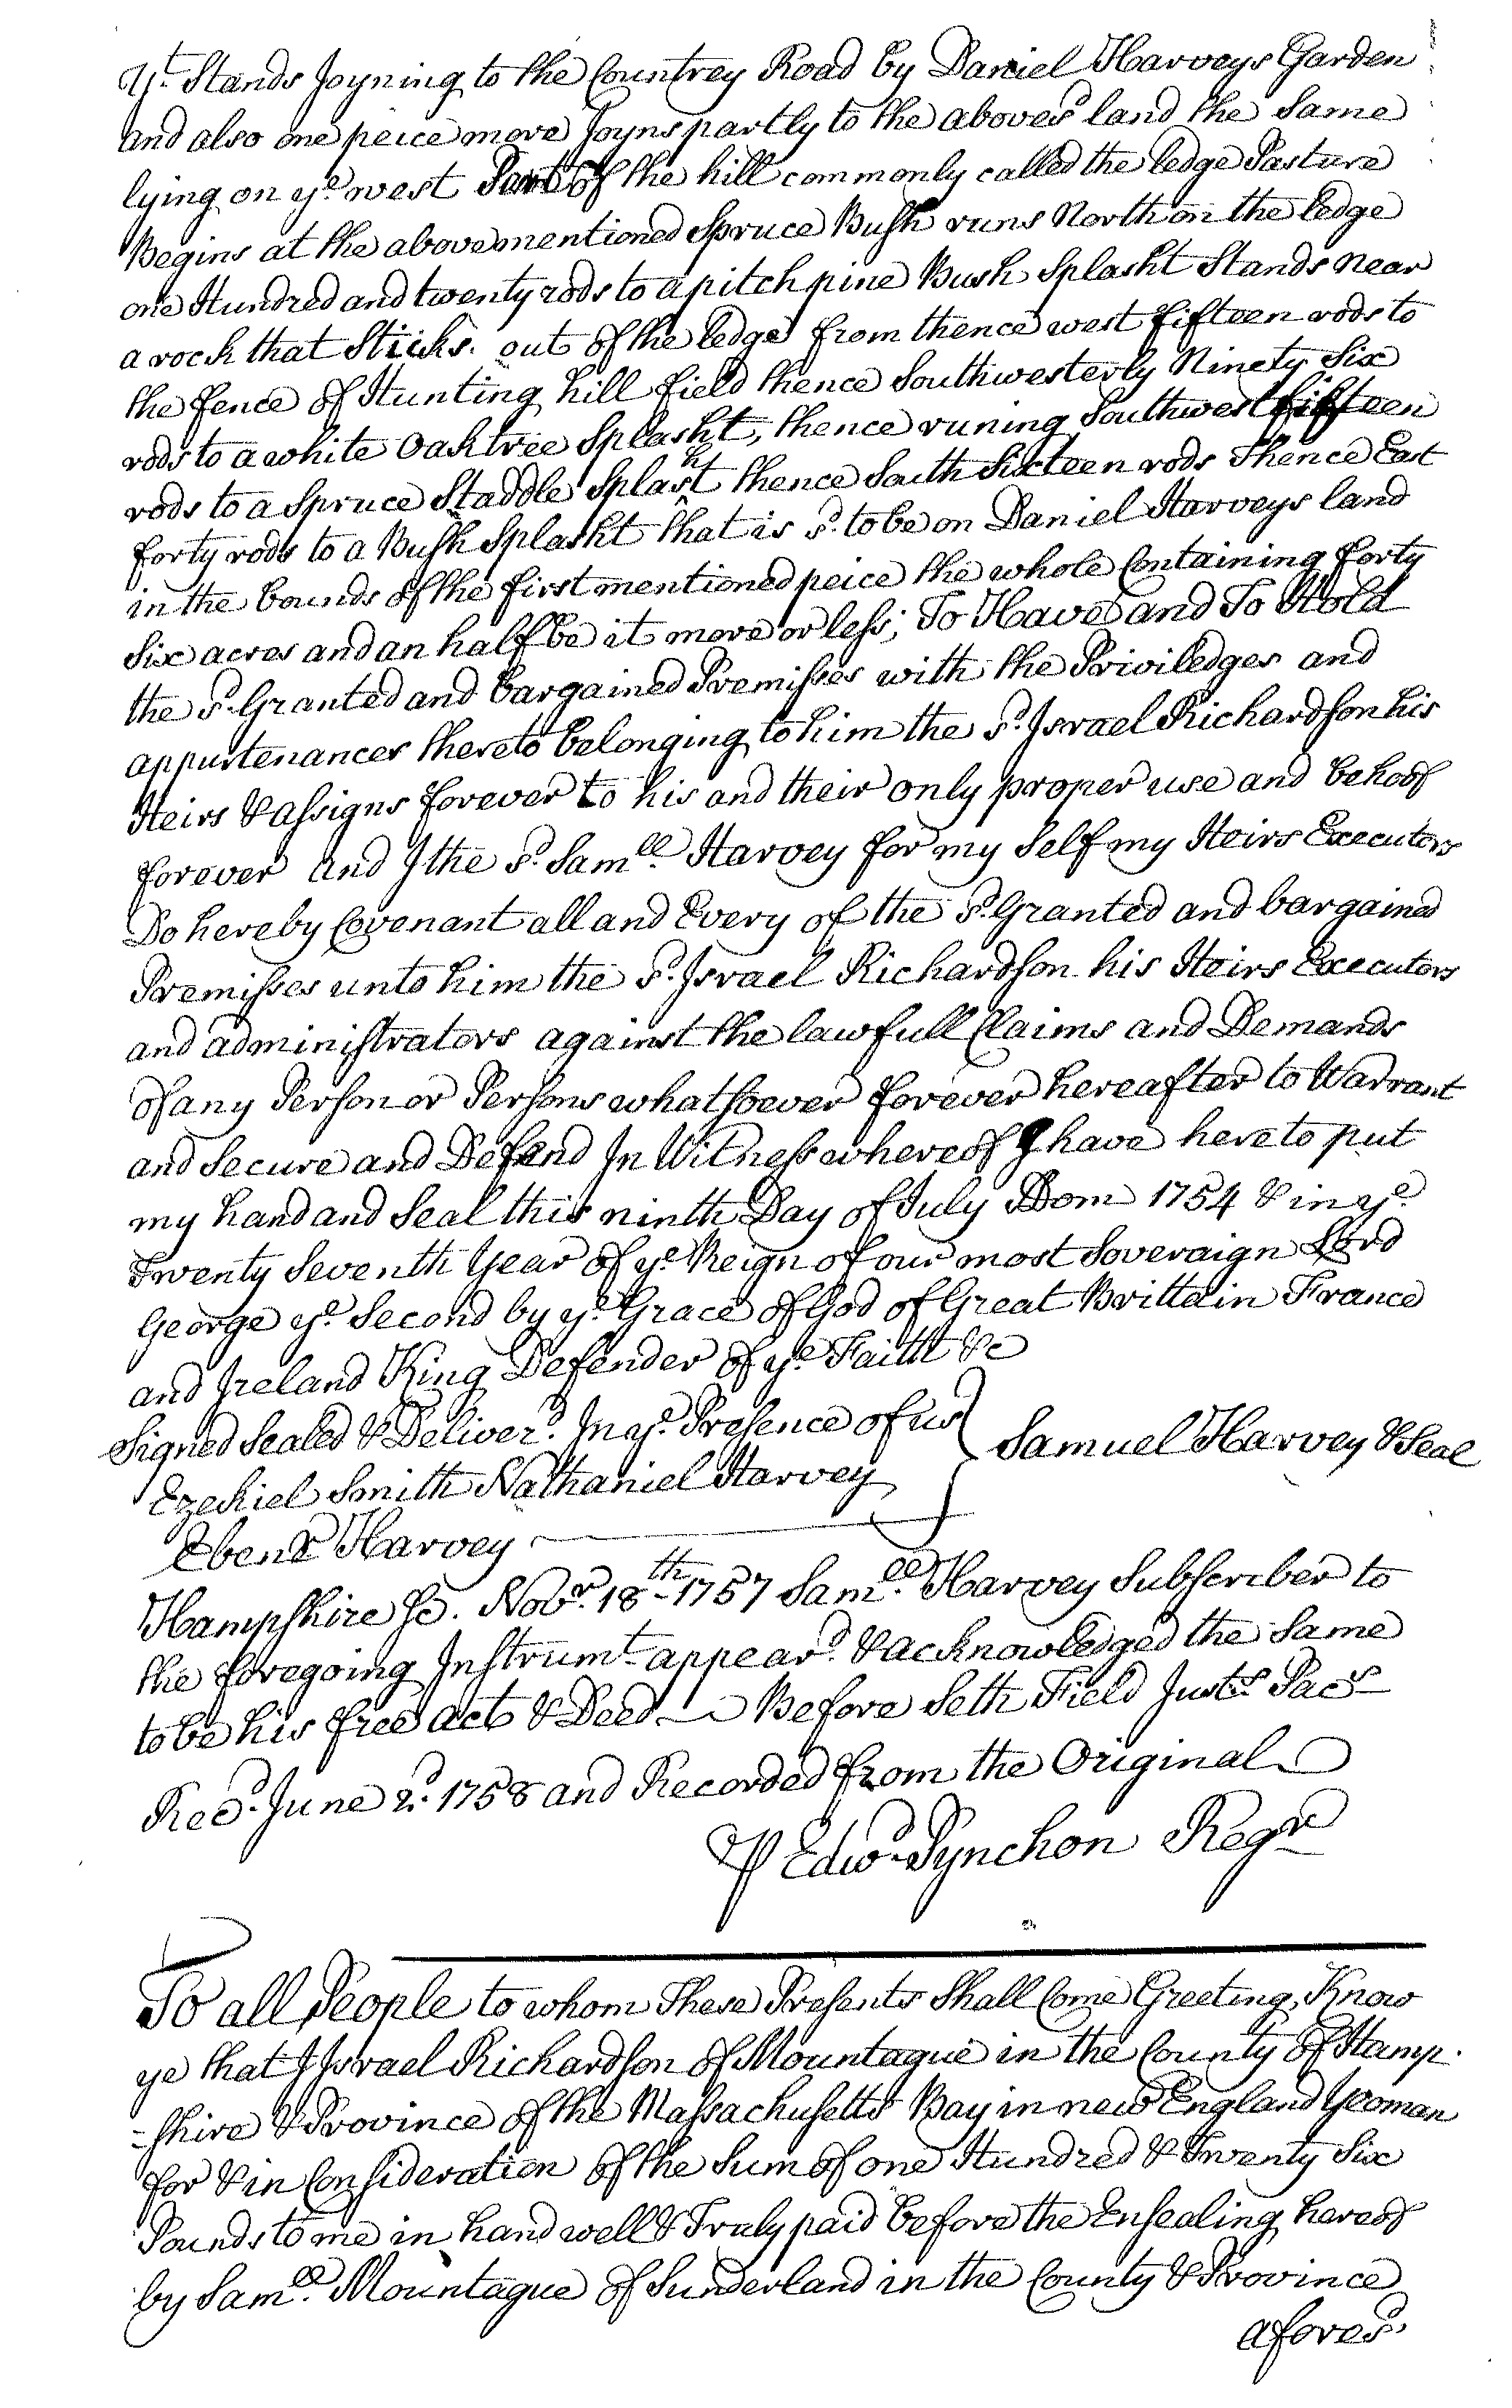 yt. Stands Joyning to the Countrey Road by Daniel Harveys Garden
and also one peice more Joyns partly to the abovesd land the Same
lying on ye. west Part of the hill commonly called the ledge Pasture
Begins at the abovementioned Spruce Bush runs North on the ledge
one Hundred and twenty rods to a pitch pine Bush Splasht Stands near
a rock that Sticks out of the ledge from thence west fifteen rods to
the fence of Hunting hill field thence Southwesterly Ninety Six
rods to a white Oak tree Splasht, thence runing Southwest fifteen
rods to a Spruce Staddle Splasht thence South Sixteen rods Thence East
forty rods to a Bush Splasht that is sd. to be on Daniel Harveys land
in the bounds of the first mentioned peice the whole Containing forty
Six acres and an half be it more or less; To Have and To Hold
the sd. Granted and bargained Premisses with the Priviledges and
appurtenances thereto belonging to him the sd. Israel Richardson his
Heirs & assigns forever to his and their only proper use and behoof
forever And I the sd. Samll. Harvey for my Self my Heirs Executors
Do hereby Covenant all and Every of the sd. Granted and bargained
Premisses unto him the sd. Israel Richardson his Heirs Executors
and administrators against the lawfull Claims and Demands
of any Person or Persons whatsoever forever hereafter to Warrant
and Secure and Defend In Witness whereof I have hereto put
my hand and Seal this ninth Day of July Dom 1754 & in ye.
Twenty Seventh Year of ye. Reign of our most Soveraign Lord
George ye. Second by ye. Grace of God of Great Brittain France
and Ireland King Defender of ye. Faith &c
Signed Sealed & Deliverd. In ye. Presence of us } Samuel Harvey & Seal
Ezekiel Smith Nathaniel Harvey
Ebenr Harvey
Hampshire Ss. Novr. 18th 1757 Samll. Harvey Subscriber to
the foregoing Instrumt appeard. & acknowledged the Same
to be his free Act & Deed — Before Seth Field Justs Pacs
Recd. June 2d. 1758 and Recorded from the Original
P Edwd Pynchon Regr
To all People to whom These Presents Shall Come Greeting, Know
ye that I Israel Richardson of Mountague in the County of Hamp-
=shire & Province of the Massachusetts Bay in new England Yeoman
for & in Consideration of the Sum of one Hundred & Twenty Six
Pounds to me in hand well & Truly paid before the Ensealing hereof
by Samll. Mountague of Sunderland in the County & Province
aforesd.